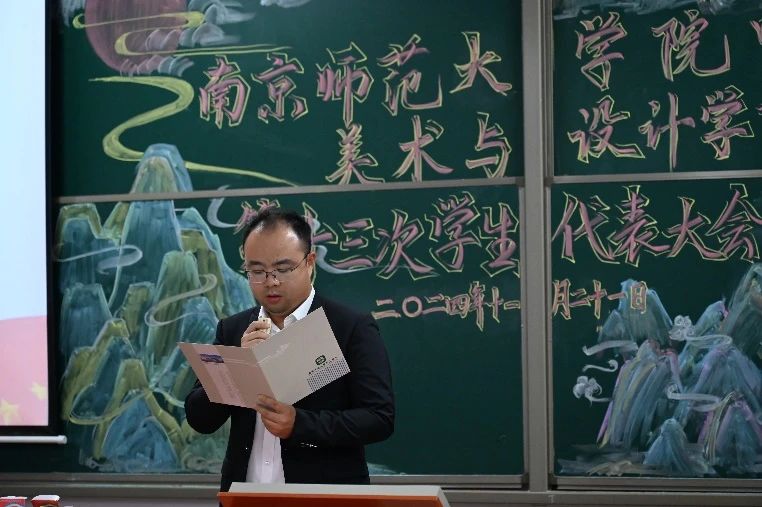 南京师范大学院
美术与设计学
第十三次学生代表大会
二〇二四年十一月二十一日